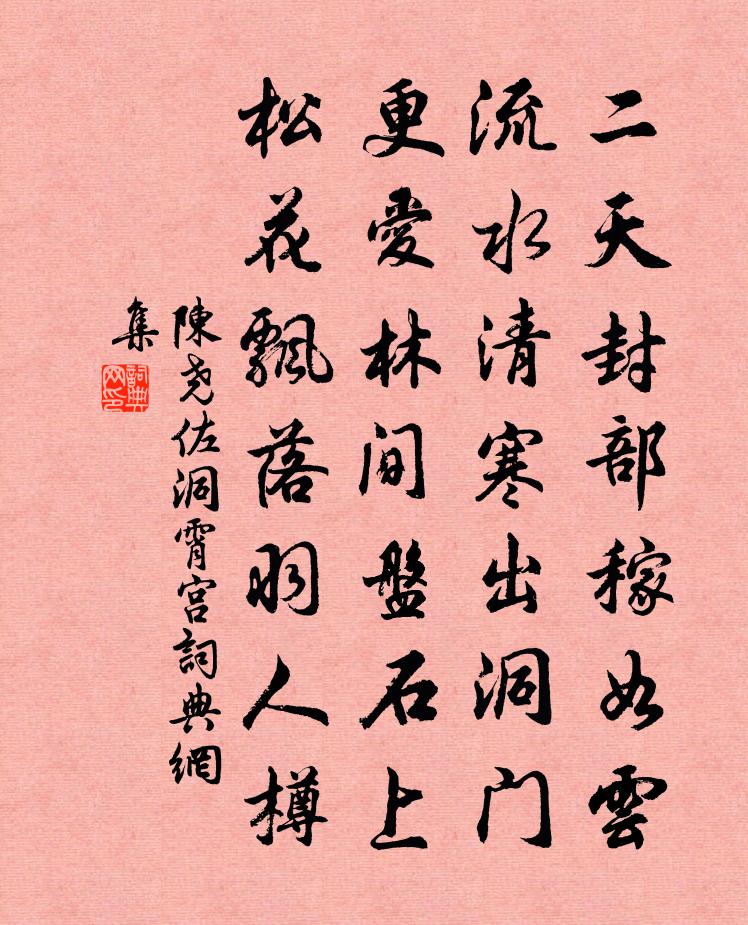 二天封部稼如雲
流水清寒出洞门
更愛林間盤石上
松花飄落羽人樽
陳尧佐洞霄宫詞典網
集
詞典
网印